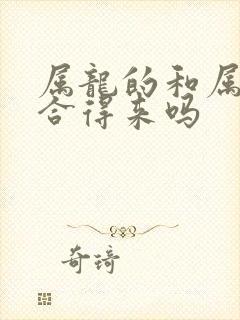 属龍的和属
合得来吗
奇琦